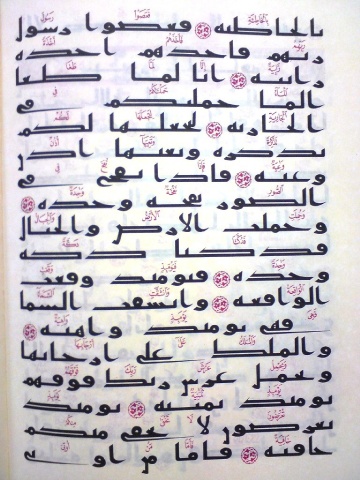 بالخاطئة ۝ فعصوا رسول
ربهم فاخذهم اخذة
رابية ۝ انا لما طغا
الما حملنكم في
الجارية ۝ لنجعلها لكم
تذكرة وتعيها اذن
وعية ۝ فاذا نفخ في
الصور نفخة وحدة ۝
وحملت الارض والجبال
فدكتا دكة
وحدة ۝ فيومئذ وقعت
الواقعة ۝ وانشقت السما
فهي يومئذ واهية ۝
والملك على ارجائها
ويحمل عرش ربك فوقهم
يومئذ ثمنية ۝ يومئذ
تعرضون لا تخفى منكم
خافية ۝ فاما من اوتي